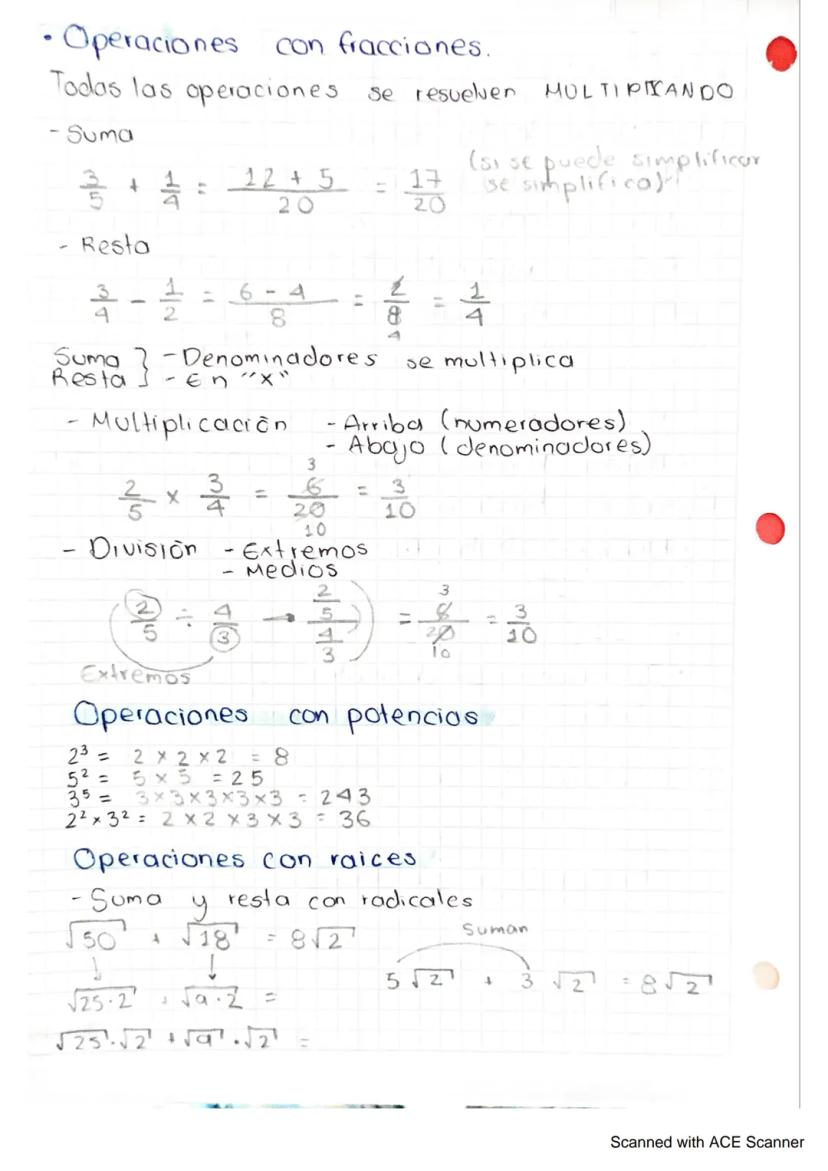 • Operaciones con fracciones.
Todas las operaciones se resuelven MULTIPLICANDO
- Suma
3/5 + 1/4 = 12 + 5/20 = 17/20 (si se puede simplificar
se simplifica)
- Resta
3/4 - 1/2 = 6 - 4/8 = 2/8 4 = 1/4
Suma } - Denominadores se multiplica
Resta } - En "x"
- Multiplicación - Arriba (numeradores)
- Abajo (denominadores)
2/5 x 3/4 = 3 6/20 10 = 3/10
- División - Extremos
- Medios
2/5 ÷ 4/3 → 2/5 / 4/3 = 3 6/20 10 = 3/10
Extremos
Operaciones con potencias
2³ = 2 x 2 x 2 = 8
5² = 5 x 5 = 25
3⁵ = 3x3x3x3x3 = 243
2² x 3² = 2 x 2 x 3 x 3 = 36
Operaciones con raices
- Suma y resta con radicales
√50 + √18 = 8√2
Suman
↓ ↓
5√2 + 3√2 = 8√2
√25·2 + √9·2 =
√25·√2 + √9·√2 =
Scanned with ACE Scanner